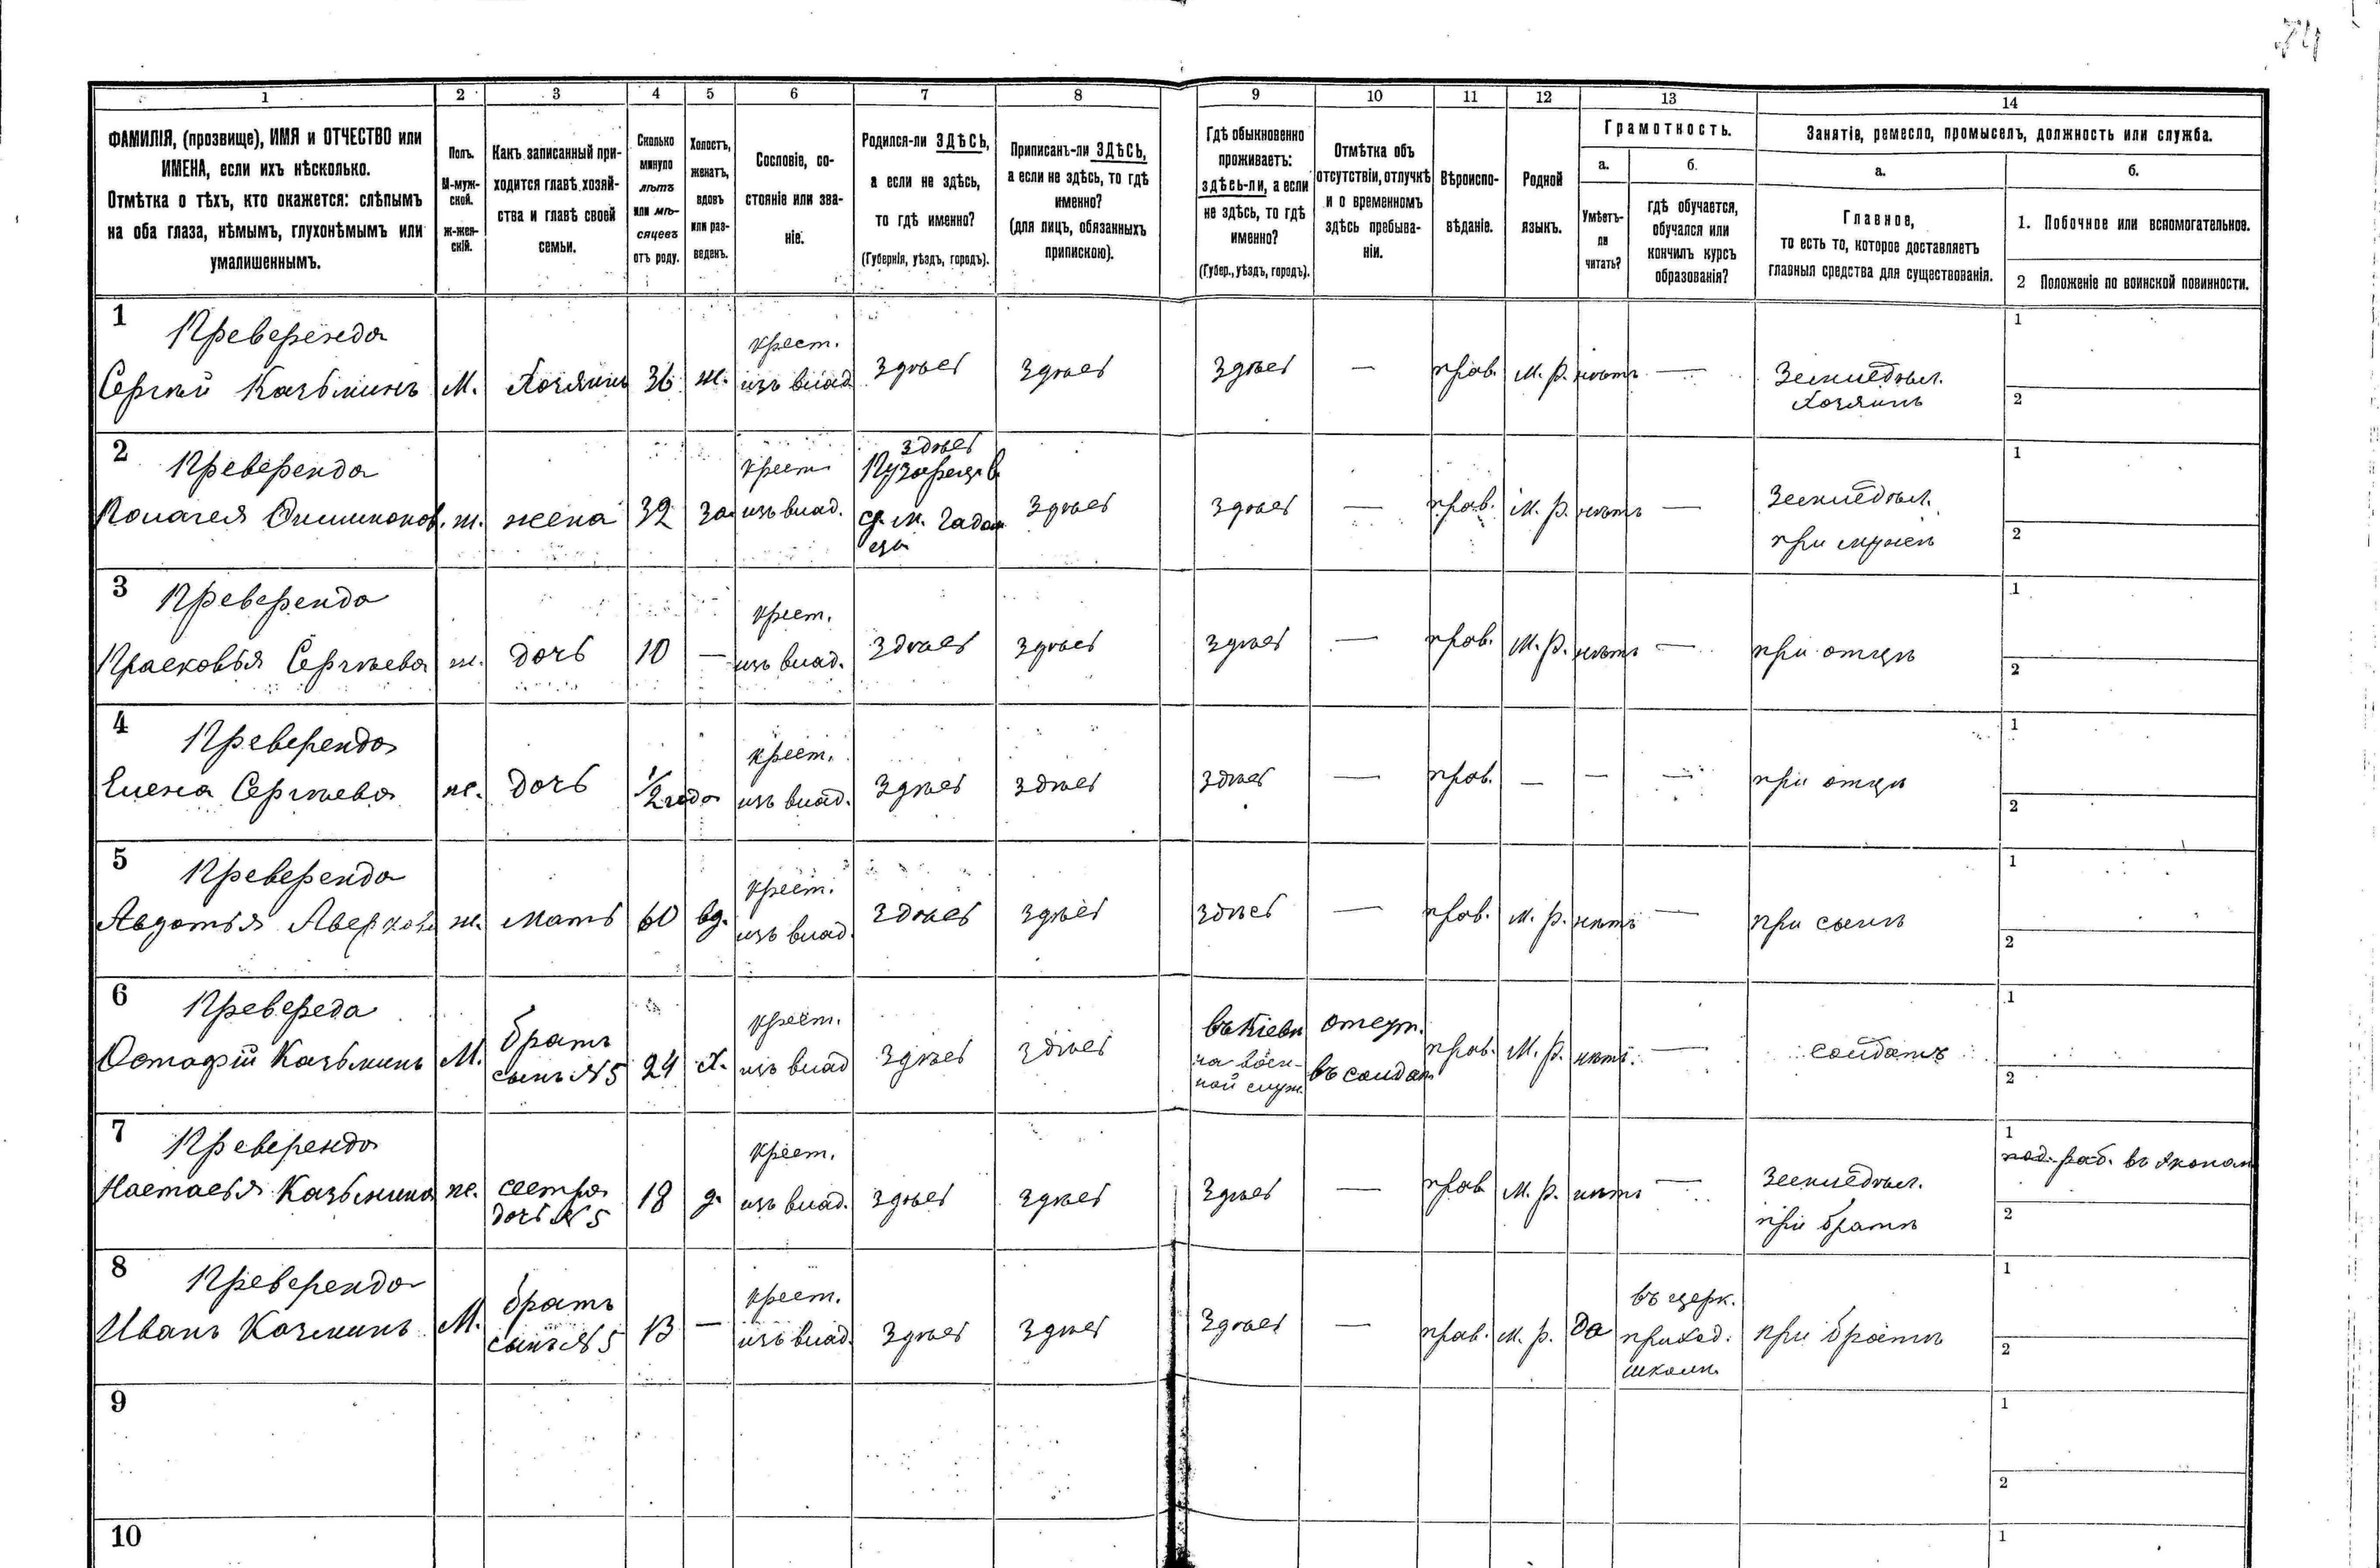 1 2 3 4 5 6 7 8 9 10 11 12 13 14
ФАМИЛІЯ, (прозвище), ИМЯ и ОТЧЕСТВО или
ИМЕНА, если ихъ нѣсколько.
Отмѣтка о тѣхъ, кто окажется: слѣпымъ
на оба глаза, нѣмымъ, глухонѣмымъ или
умалишеннымъ.
Полъ.
М-муж-
ской.
ж-жен-
скій.
Какъ записанный при-
ходится главѣ хозяй-
ства и главѣ своей
семьи.
Сколько
минуло
лѣтъ
или мѣ-
сяцевъ
отъ роду.
Холостъ,
женатъ,
вдовъ
или раз-
веденъ.
Сословіе, со-
стояніе или зва-
ніе.
Родился-ли ЗДѢСЬ,
а если не здѣсь,
то гдѣ именно?
(Губернія, уѣздъ, городъ).
Приписанъ-ли ЗДѢСЬ,
а если не здѣсь, то гдѣ
именно?
(для лицъ, обязанныхъ
припискою).
Гдѣ обыкновенно
проживаетъ:
здѣсь-ли, а если
не здѣсь, то гдѣ
именно?
(Губер., уѣздъ, городъ).
Отмѣтка объ
отсутствіи, отлучкѣ
и о временномъ
здѣсь пребыва-
ніи.
Вѣроиспо-
вѣданіе.
Родной
языкъ.
Грамотность.
а.
Умѣетъ-
ли
читать?
б.
гдѣ обучается,
обучался или
кончилъ курсъ
образованія?
Занятіе, ремесло, промыселъ, должность или служба.
а.
Главное,
то есть то, которое доставляетъ
главныя средства для существованія.
б.
1. Побочное или вспомогательное.
2 Положеніе по воинской повинности.
1
Преверенда
Сергѣй Казьминъ
М.
Хозяинъ
36
ж.
крест.
изъ влад
здѣсь
здѣсь
здѣсь
—
прав.
м. р.
нѣтъ
—
Земледѣл.
Хозяинъ
1
2
2
Преверенда
ж.
жена
32
за
крест
изъ влад.
здѣсь
здѣсь
здѣсь
—
прав.
м. р.
нѣтъ
—
Земледѣл.
при мужѣ
1
2
3
Преверенда
Прасковья Сергѣева
ж.
дочь
10
—
крест.
изъ влад.
здѣсь
здѣсь
здѣсь
—
прав.
м. р.
нѣтъ
—
при отцѣ
1
2
4
Преверенда
Елена Сергѣева
ж.
дочь
1/2 года
крест.
изъ влад.
здѣсь
здѣсь
здѣсь
—
прав.
—
—
—
при отцѣ
1
2
5
Преверенда
Авдотья Аверкова
ж.
мать
60
вд.
крест.
изъ влад.
здѣсь
здѣсь
здѣсь
—
прав.
м. р.
нѣтъ
—
при сынѣ
1
2
6
Превереда
Остафій Казьминъ
М.
братъ
сынъ №5
24
х.
крест.
изъ влад
здѣсь
здѣсь
въ Кіевѣ
на воен-
ной служ.
отсут.
въ солдат
прав.
м. р.
нѣтъ.
—
солдатъ
1
2
7
Преверенда
Настасья Казьмина
ж.
сестра
дочь №5
18
д.
крест.
изъ влад.
здѣсь
здѣсь
здѣсь
—
прав
м. р.
нѣтъ
—
Земледѣл.
при братѣ
1
раб. въ эконом
2
8
Преверенда
Иванъ Козминъ
М.
братъ
сынъ №5
13
—
крест.
изъ влад.
здѣсь
здѣсь
здѣсь
—
прав.
м. р.
да
въ церк.
приход.
школѣ
при братѣ
1
2
9
1
2
10
1